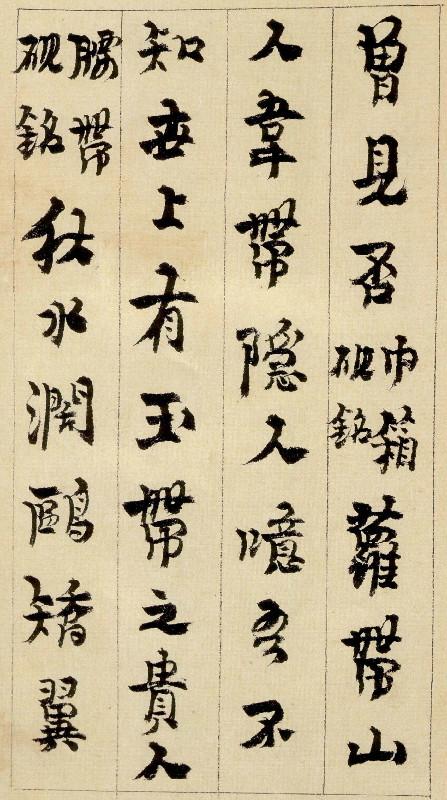 曾見否巾箱硯銘蘿帶山
人韋帶隱人噫吾不
知世上有玉帶之貴人
腰帶硯銘秋水濶鷗矯翼